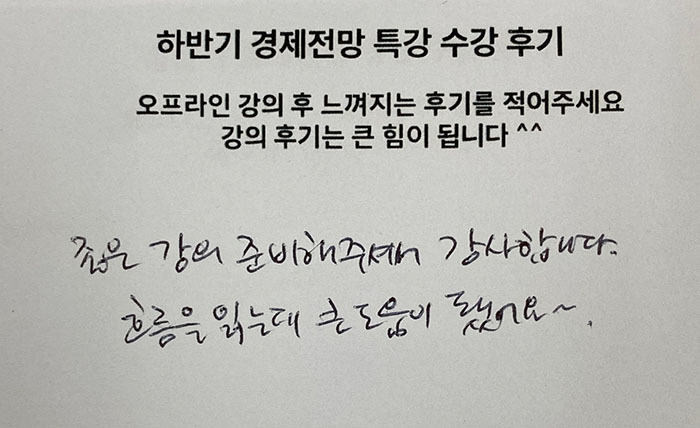 하반기 경제전망 특강 수강 후기
오프라인 강의 후 느껴지는 후기를 적어주세요
강의 후기는 큰 힘이 됩니다 ^^
좋은 강의 준비해주셔서 감사합니다.
흐름을 읽는데 큰 도움이 됐어요~.